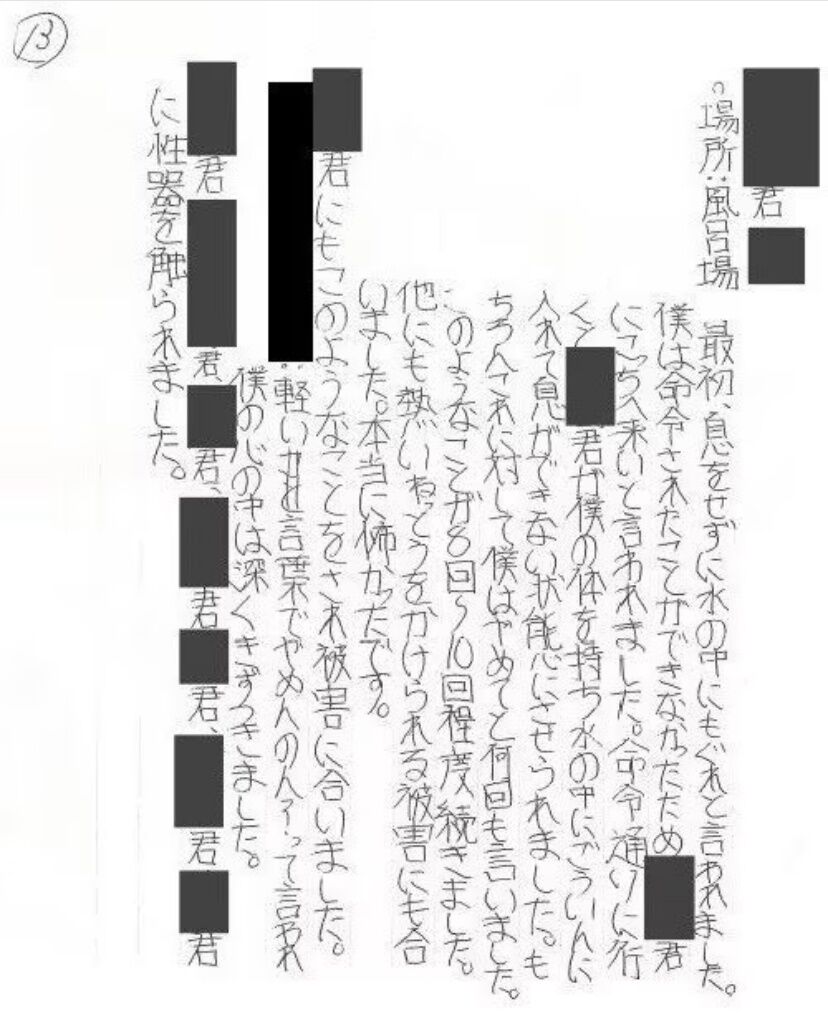 B
君
。場所:風呂場
最初、息をせずに水の中にもぐれと言われました。
僕は命令されたことができなかったため 君
にこっちへ来いと言われました。命令通りに行
くと 君が僕の体を持ち水の中にごういんに
入れて息ができない状態にさせられました。も
ちろんこれに対して僕はやめてと何回も言いました。
このようなことが8回~10回程度続きました。
他にも熱いねっとうをかけられる被害にも合
いました。本当に怖かったです。
君にもこのようなことをされ被害に合いました。
:軽い 言葉でやめんのん?って言われ
僕の心の中は深くきずつきました。
君 君、 君、 君 君、 君 君
に性器を触られました。